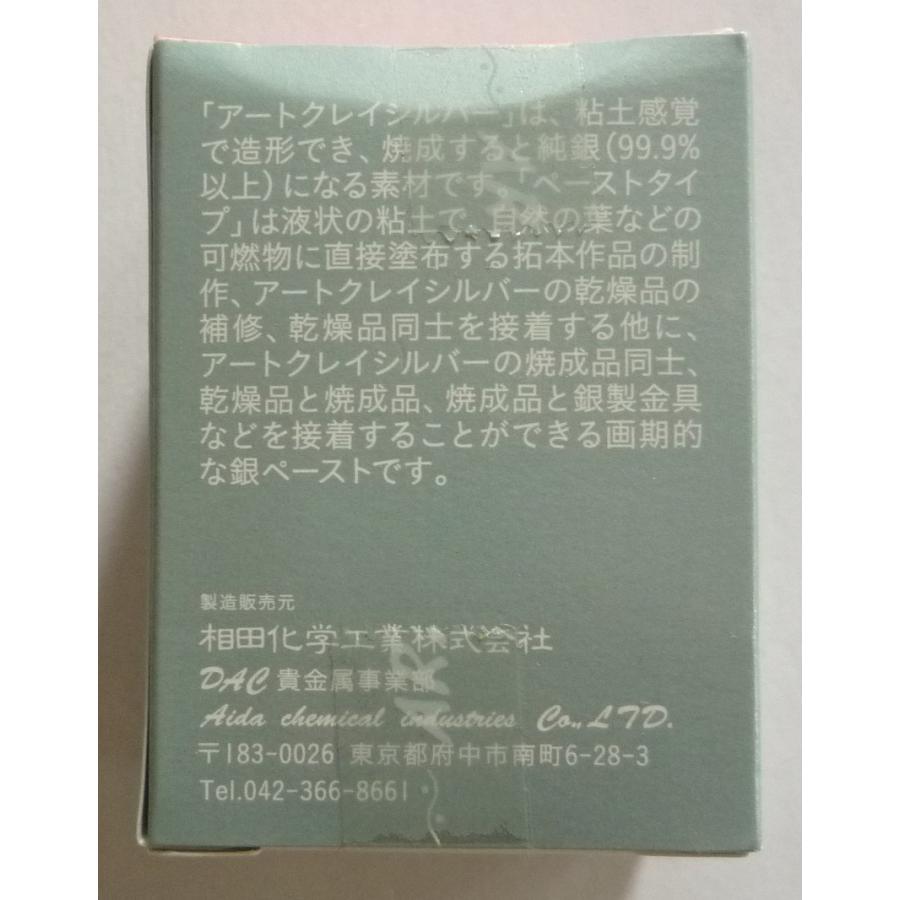 「アートクレイシルバー」は、粘土感覚
で造形でき、焼成すると純銀(99.9%
以上)になる素材です。「ペーストタイ
プ」は液状の粘土で、自然の葉などの
可燃物に直接塗布する拓本作品の制
作、アートクレイシルバーの乾燥品の
補修、乾燥品同士を接着する他に、
アートクレイシルバーの焼成品同士、
乾燥品と焼成品、焼成品と銀製金具
などを接着することができる画期的
な銀ペーストです。
製造販売元
相田化学工業株式会社
DAC 貴金属事業部
Aida chemical industries Co.,LTD.
〒183-0026 東京都府中市南町6-28-3
Tel.042-366-8661